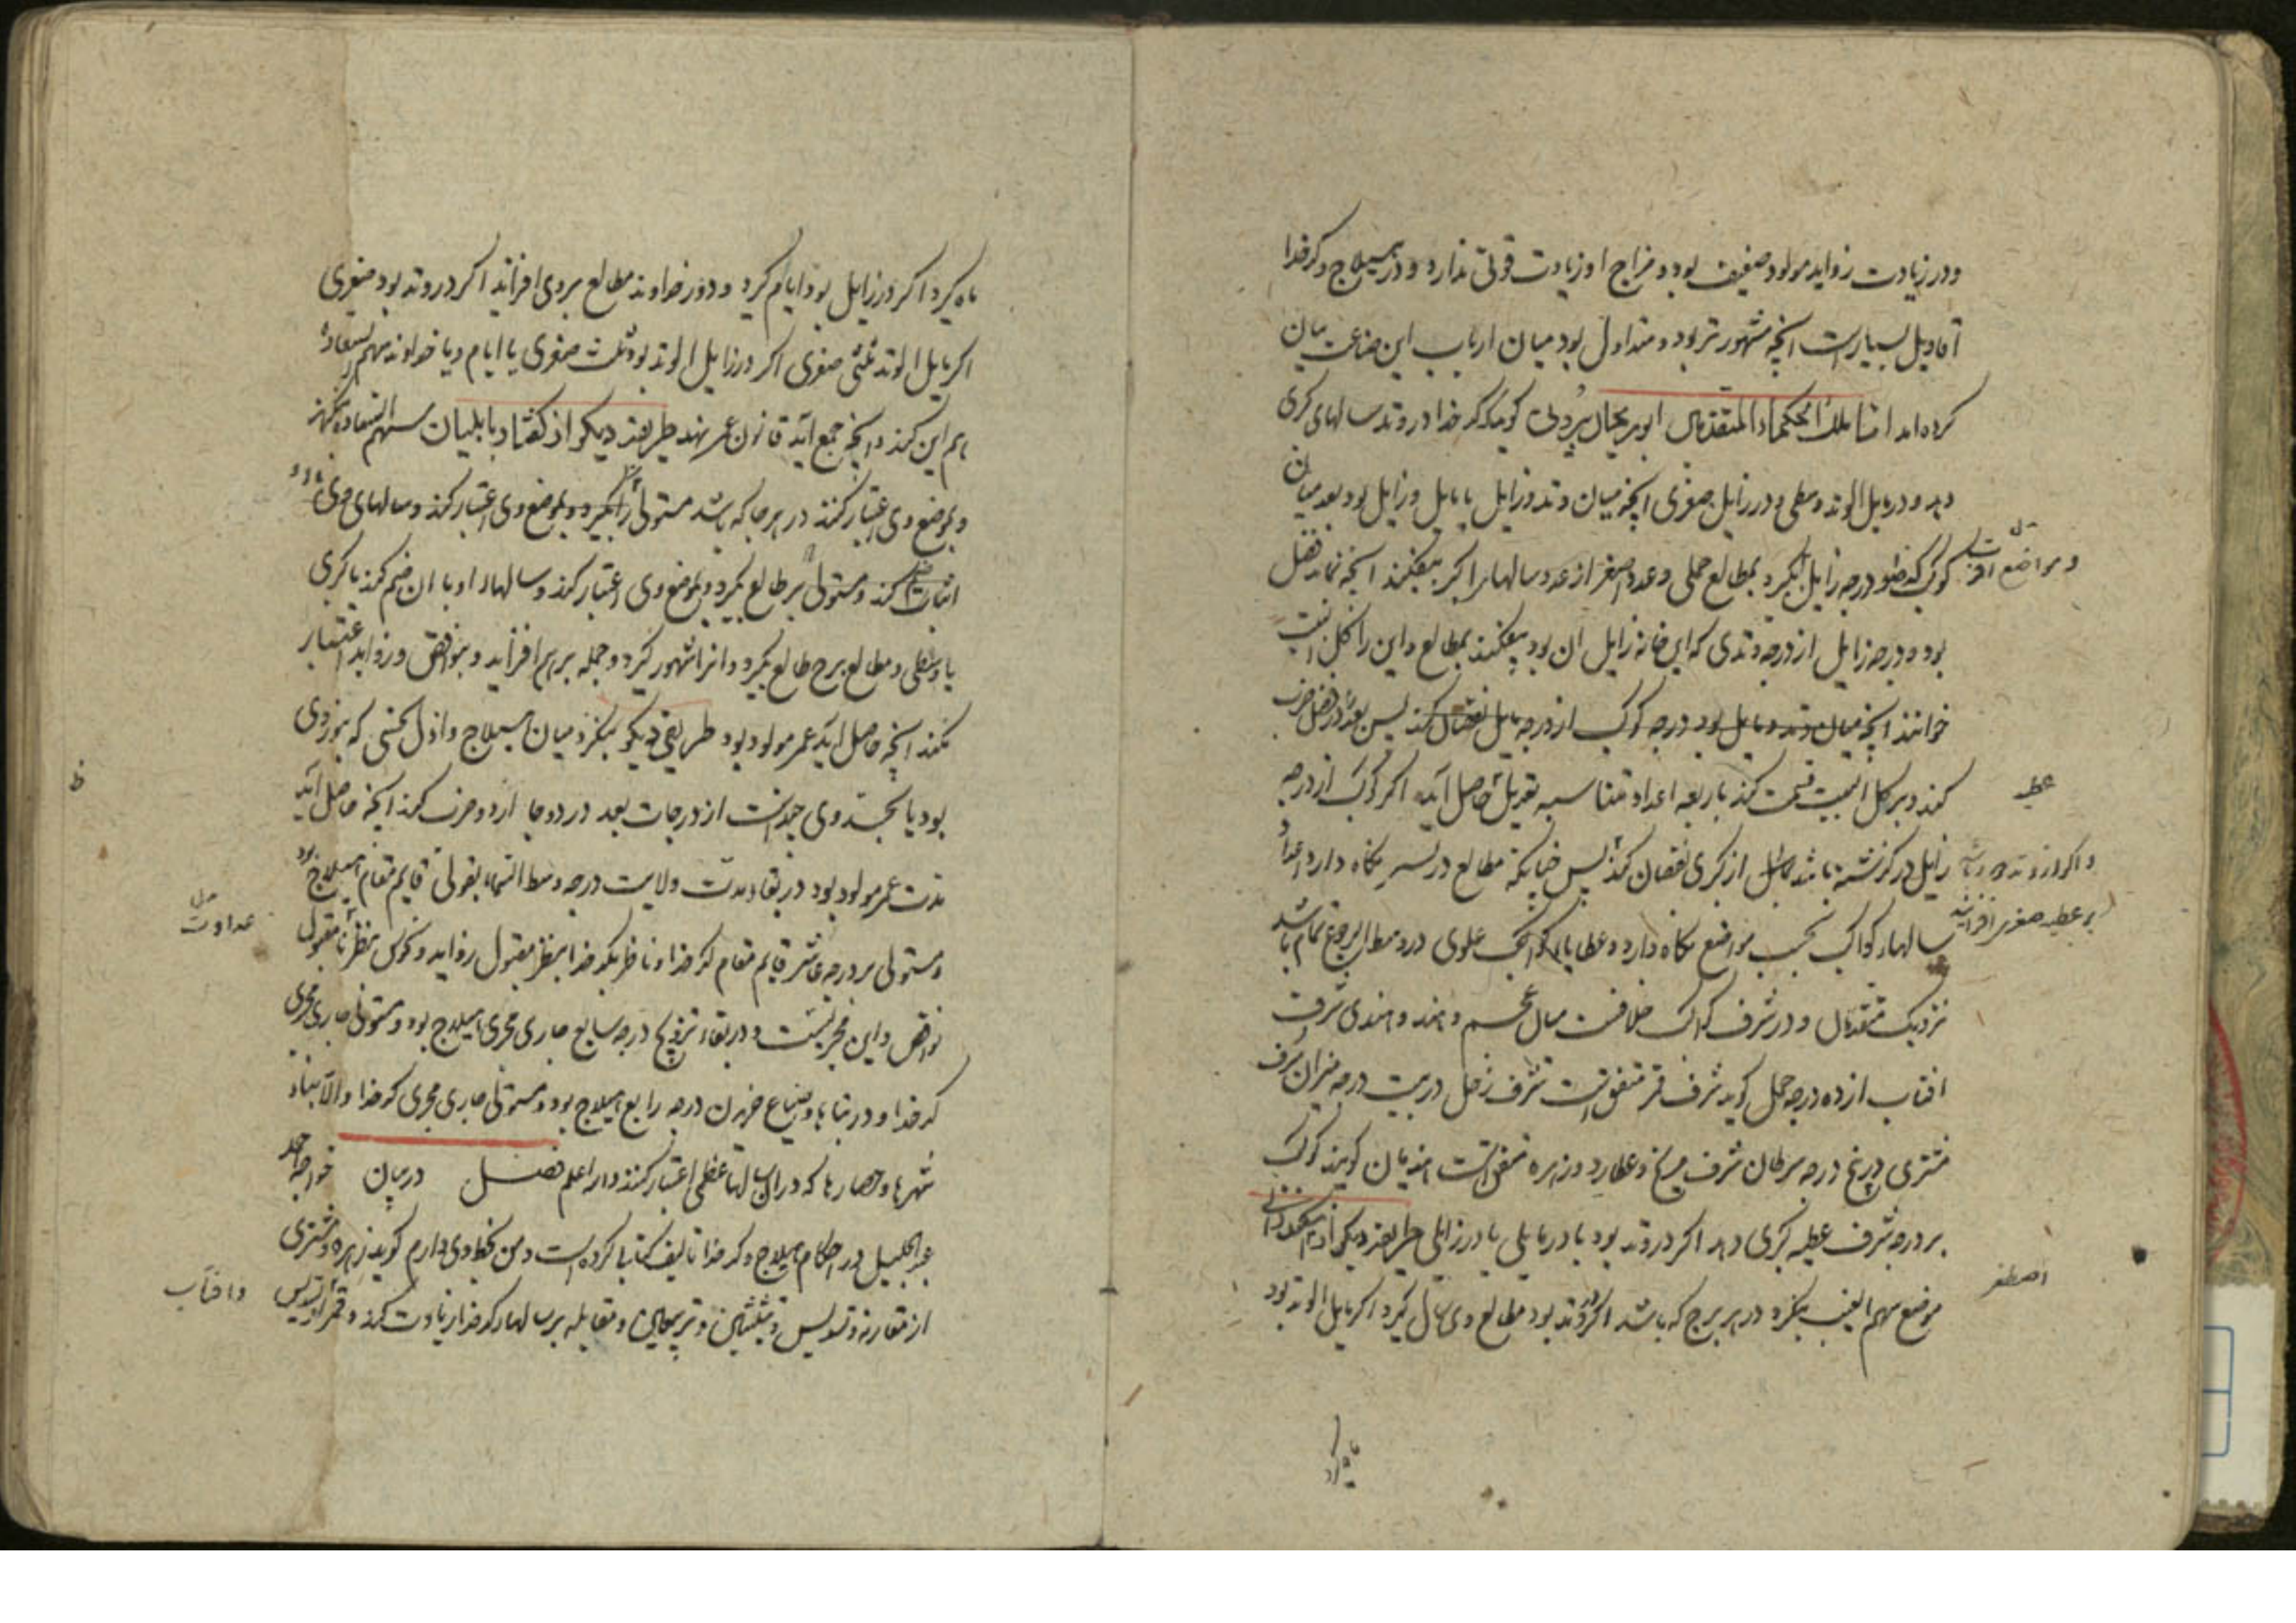 ودر زیادت زواید مولود ضعیف بود و مزاج او زیادت قوتی ندارد و در هیلاج و کدخدا
اقاویل بسیارست انچه مشهورتر بود و متداول بود میان ارباب این صناعت بیان
کرده‌اند اما ملک الحکماء المتقدمین ابو ریحان بیرونی گوید که کدخدا در وتد سالهای کبری
دهد و در مایل الوتد وسطی و در زایل صغری انچه میان وتد و زایل یا مایل و زایل بود بعد میان
کوکب که در درجه زایل بگیرد بمطالع حملی و عدد اصغر از عدد سالها اکبر بیفکند انچه بماند فضل
بود و درجه زایل از درجه وتدی که این خانه زایل آن بود بیفکند بمطالع و این را کل البیت
خوانند انچه میان وتد و مایل بود درجه کوکب از درجه مایل نقصان کند پس بعد در فضل ضرب
کند و بر کل البیت قسمت کند باربعه اعداد متناسبه تعدیل حاصل آید اگر کوکب از درجه
زایل در گذشته باشد از کبری نقصان کند پس چنانکه مطالع در تسییر نگاه دارد
سالهاء کواکب بحسب مواضع نگاه دارد و عطایاء کواکب علوی در وسط البروج تمام باشد
نزدیک متقدمان و در شرف کواکب خلافست میان عجم و هند و هندی شرف
افتاب از ده درجه حمل گوید شرف قمر متفق است شرف زحل در بیست درجه میزان شرف
مشتری در پنج درجه سرطان شرف مریخ و عطارد و زهره متفق است هندیان گویند کوکب
بر درجه شرف عطیه کبری دهد اگر در وتد بود یا در مایلی یا در زایلی طریقه دیگر
موضع سهم الغیب بنگرد در هر برج که باشد اگر در وتد بود مطالع وی سال گیرد اگر مایل الوتد بود
و مواضع
عط
بر عطیه صغری افزاید
اصطخر
ماه گیرد
ماه گیرد اگر در زایل بود ایام گیرد و دور خداوند مطالع بر وی افزاید اگر در وتد بود صغری
اگر مایل الوتد ثلثی صغری اگر در زایل الوتد بود ثلث صغری یا ایام و با خداوند سهم السعاده
هم این کند و انچه جمع آید قانون عمر نهند طریقه دیگر از گفتار بابلیان سهم السعاده بنگرند
و بموضع وی اعتبار کنند در هر جا که باشد مستولی را بگیرد و بموضع وی اعتبار کند و سالهای وی
اثبات کند و مستولی بر طالع بگیرد و بموضع وی اعتبار کند و سالهاء او با ان ضم کند با کبری
یا وسطی و مطالع برج طالع بگیرد و انرا شهور گیرد و جمله بر هم افزاید و بنواقص و زواید اعتبار
بکند انچه حاصل اید عمر مولود بود طریقی دیگر بنگرد میان هیلاج و اول نحسی که
بود یا بجسد وی چندست از درجات بعد در دوجا از دو ضرب کند انچه حاصل آید
مدت عمر مولود بود در بقاء مدت ولایت درجه وسط السماء بقولی قایم مقام هیلاج بود
و مستولی بر درجه عاشر قایم مقام کدخدا و ناظر بکدخدا بنظر مقبول زواید و نحوس بنظر نامقبول
نواقص و این مجربست و در بقاء تزویج درجه سابع جاری مجری هیلاج بود و مستولی جاری مجری
کدخدا و در بناها و ضیاع خریدن درجه رابع هیلاج بود و مستولی جاری مجری کدخدا والا بناء
شهرها و حصارها که در ان سالهاء عظمی اعتبار کنند والله اعلم فصل در بیان خواجه احمد
عبد الجلیل در احکام هیلاج و کدخدا تالیف کتابها کرده است و من بخط وی دارم گوید زهره و مشتری
از مقارنه و تسدیس و تثلیثین و تربیعین و مقابله بر سالهاء کدخدا زیادت کند و قمر از تسدیس
عداوت
وافتاب